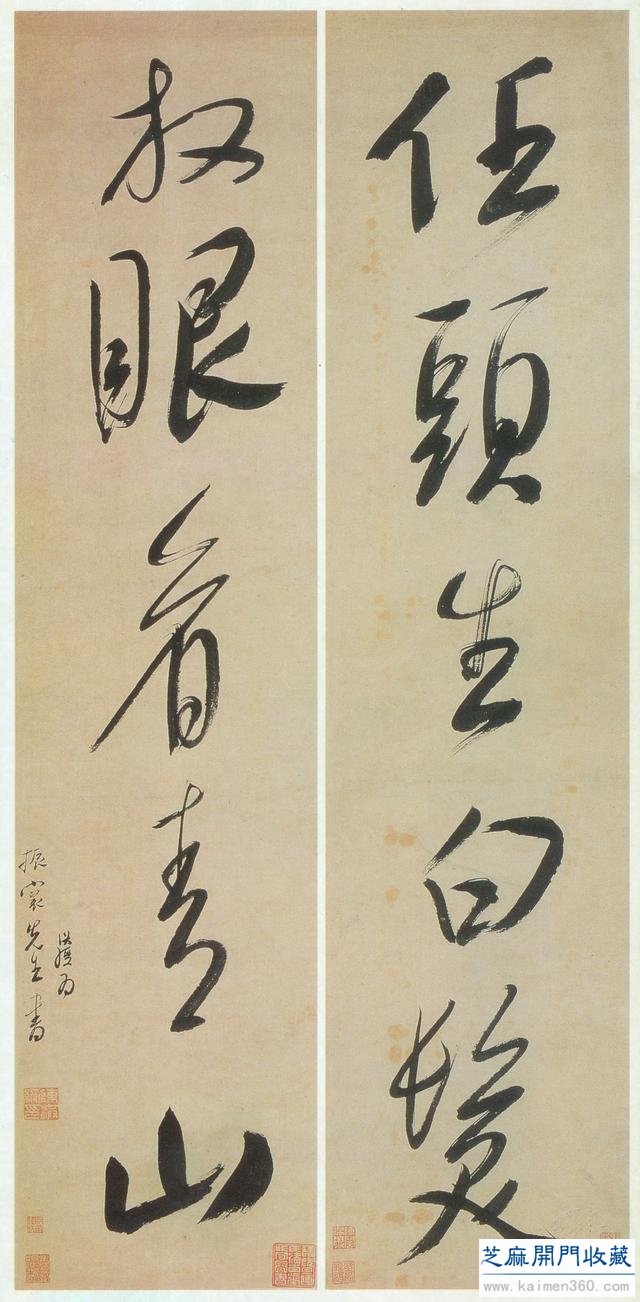 任頭生白髮
放眼看青山
洪綬為
振寰先生書
芝麻開門收藏
www.kaimen360.com